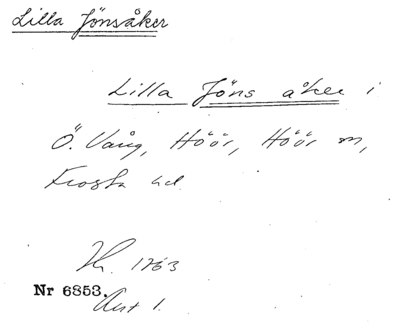 Lilla Jönsåker
Lilla Jöns åker i
Ö. Vång, Höör, Höör sn,
Frosta hd
1763
Nr 6853.
1.